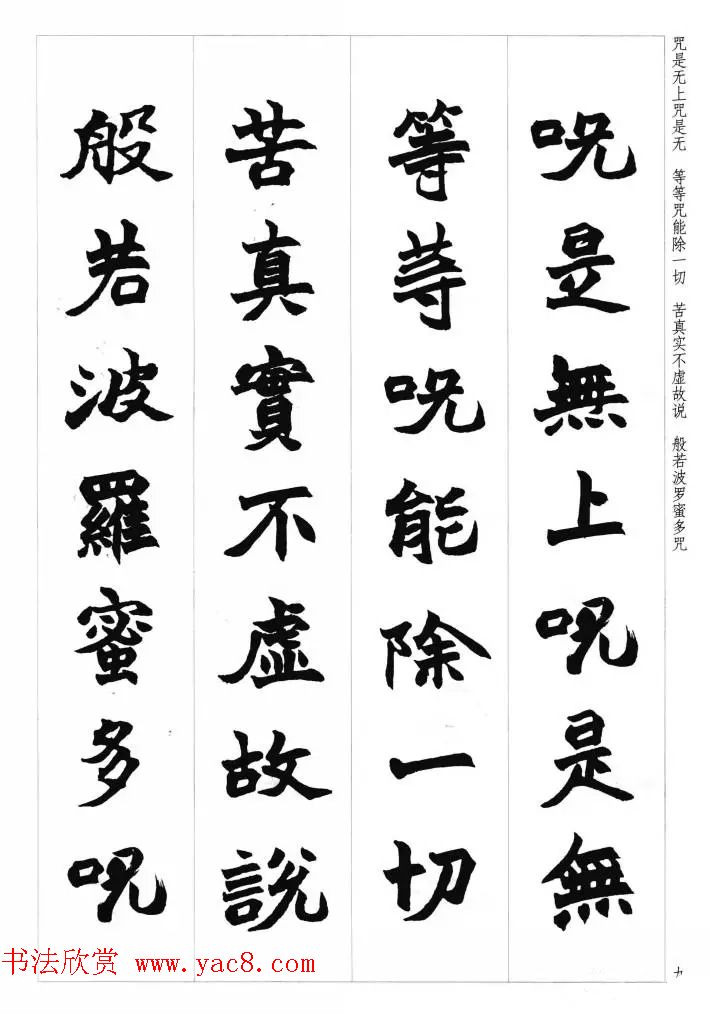 咒是无上咒是无 等等咒能除一切 苦真实不虚故说 般若波罗蜜多咒
呪是無上呪是無
等等呪能除一切
苦真實不虛故說
般若波羅蜜多呪
九
书法欣赏 www.yac8.com